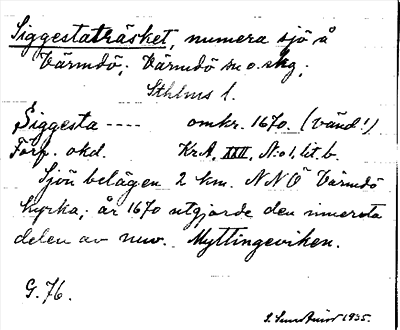 Siggestaträsket, numera sjö å
Värmdö; Värmdö sn o. skg,
Sthlms l.
Siggesta ---- omkr. 1670. (vänd!)
Förf. okd. Kr.A. XXII, N:o 1, lit. b.
Sjön belägen 2 km. NNÖ Värmdö
kyrka; år 1670 utgjorde den innersta
delen av nuv. Myttingeviken.
G. 76.
1935.